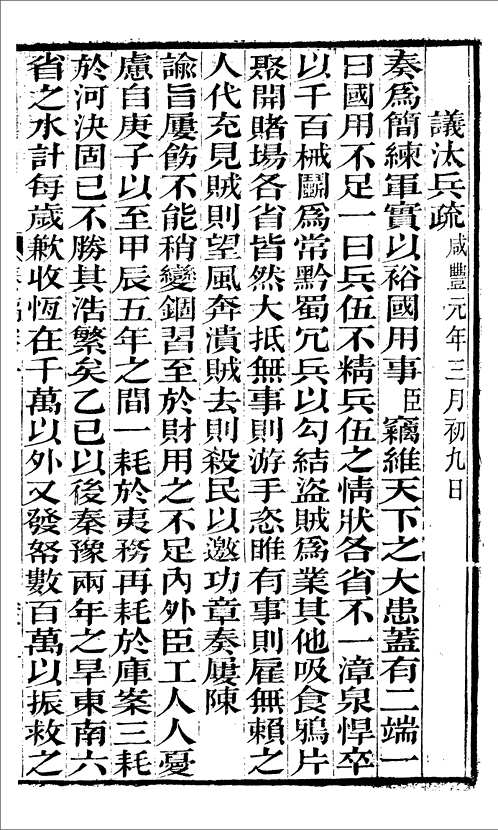 議汰兵疏咸豐元年三月初九日
奏為簡練軍實以裕國用事臣竊維天下之大患蓋有二端一
曰國用不足一曰兵伍不精兵伍之情狀各省不一漳泉悍卒
以千百械鬬為常黔蜀冗兵以勾結盜賊為業其他吸食鴉片
聚開賭場各省皆然大抵無事則游手恣睢有事則雇無賴之
人代充見賊則望風奔潰賊去則殺民以邀功章奏屢陳
諭旨屢飭不能稍變錮習至於財用之不足內外臣工人人憂
慮自庚子以至甲辰五年之間一耗於夷務再耗於庫案三耗
於河決固已不勝其浩繁矣乙巳以後秦豫兩年之旱東南六
省之水計每歲歉收恆在千萬以外又發帑數百萬以振救之